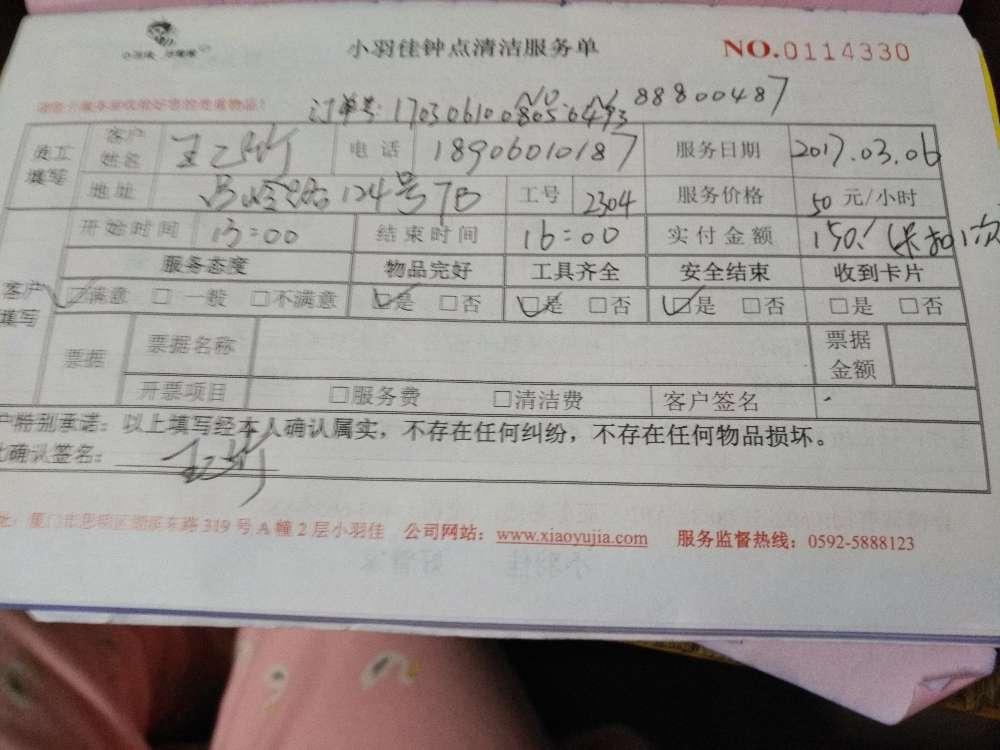 小羽佳钟点清洁服务单 NO.0114330
订单号: 17030610080 NO. 88800487
员工填写 客户姓名 电话 18906010187 服务日期 2017.03.06
地址 124号7B 工号 2304 服务价格 50 元/小时
开始时间 13:00 结束时间 16:00 实付金额 150
服务态度 物品完好 工具齐全 安全结束 收到卡片
客户填写 ☑满意 □ 一般 □不满意 ☑是 □否 ☑是 □否 ☑是 □否 □是 □否
票据 票据名称 票据金额
开票项目 □服务费 □清洁费 客户签名
户特别承诺：以上填写经本人确认属实，不存在任何纠纷，不存在任何物品损坏。
确认签名：
东路 319 号 A 幢 2 层小羽佳 公司网站：www.xiaoyujia.com 服务监督热线：0592-5888123